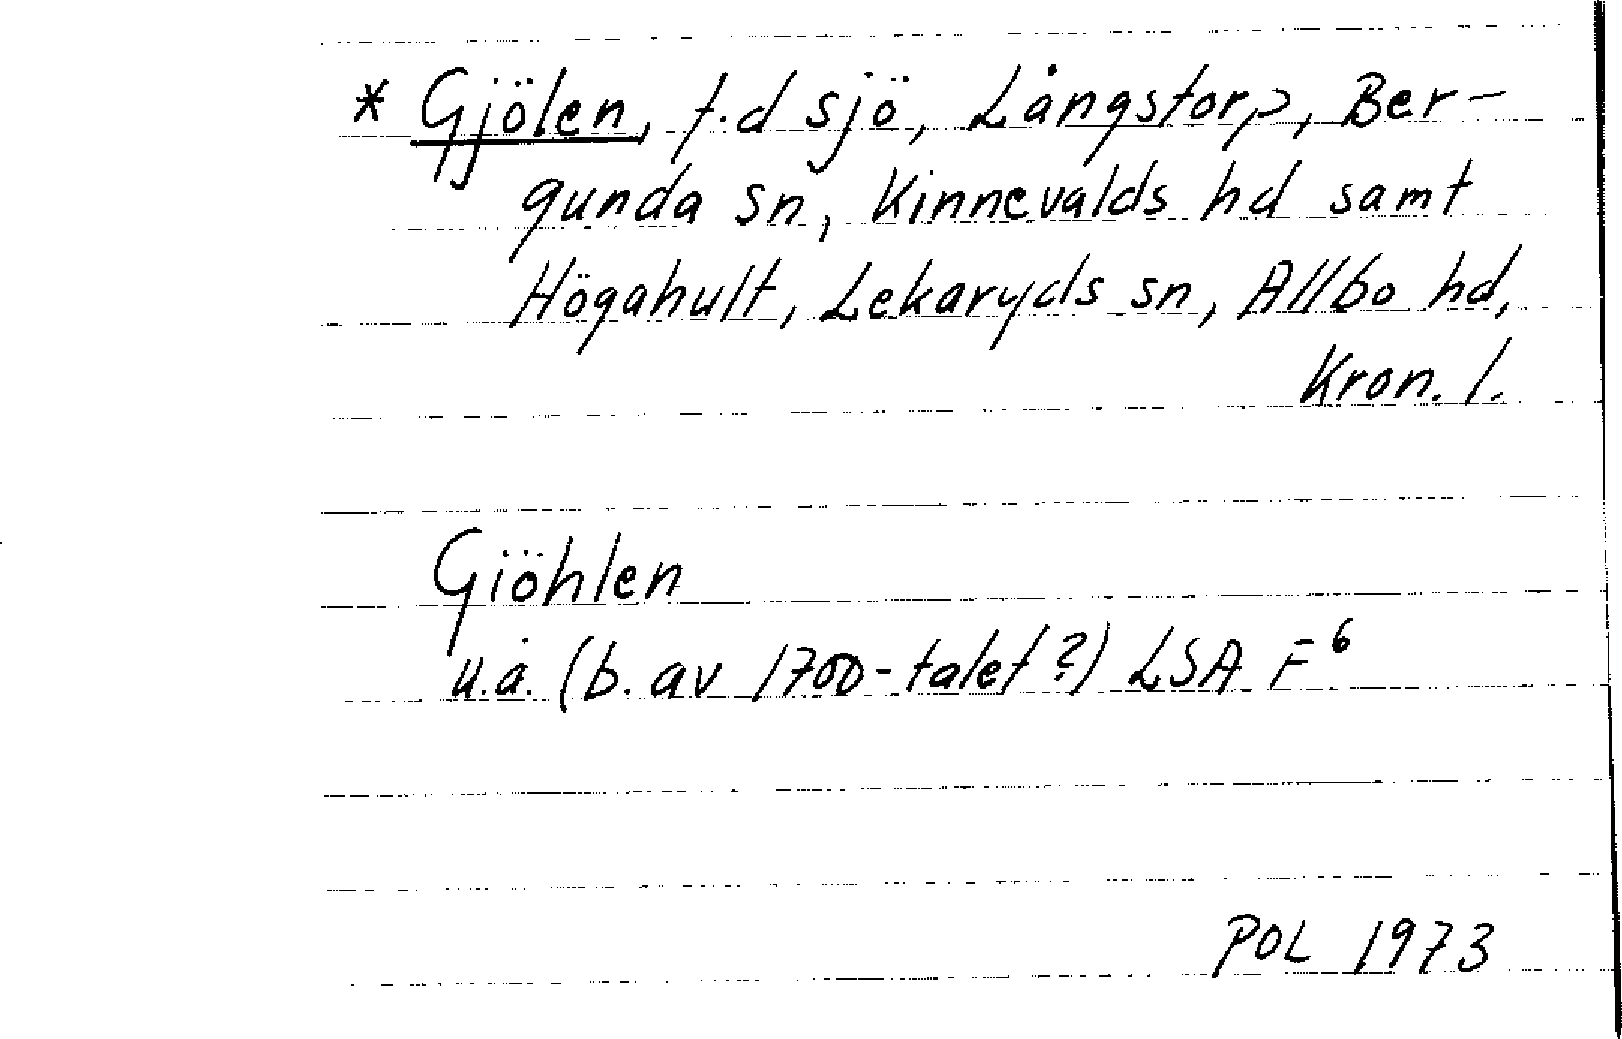 * Gjölen, f.d sjö, Långstorp, Ber-
gunda sn, Kinnevalds hd samt
Högahult, Lekaryds sn, Allbo hd,
Kron. l.
Giöhlen
u.å. (b. av 1700-talet?) LSA F⁶
POL 1973